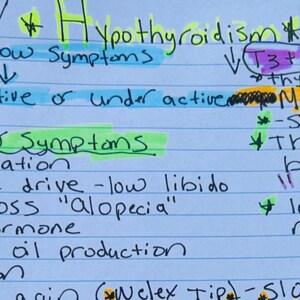 * Hypothyroidism *
ow Symptoms
↓ T3+
* th
tive or under active M
Symptoms * S
* Th
ation
drive - low libido
oss "alopecia" * l
rmone
oil production
on
gain (*Nclex Tip)